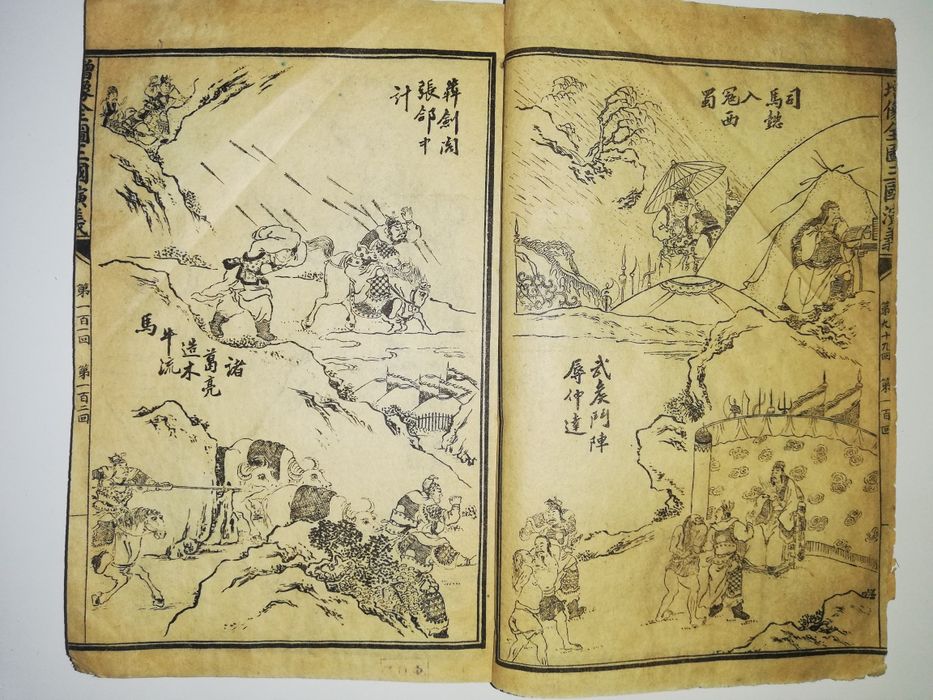 增像全圖三國演義
第九十九回 第一百回
司
馬懿
入
寇西
蜀
武侯鬥陣
辱仲達
奔劍閣
張郃中
計
諸
葛亮
造木
牛流
馬
增像全圖三國演義
第一百一回 第一百二回